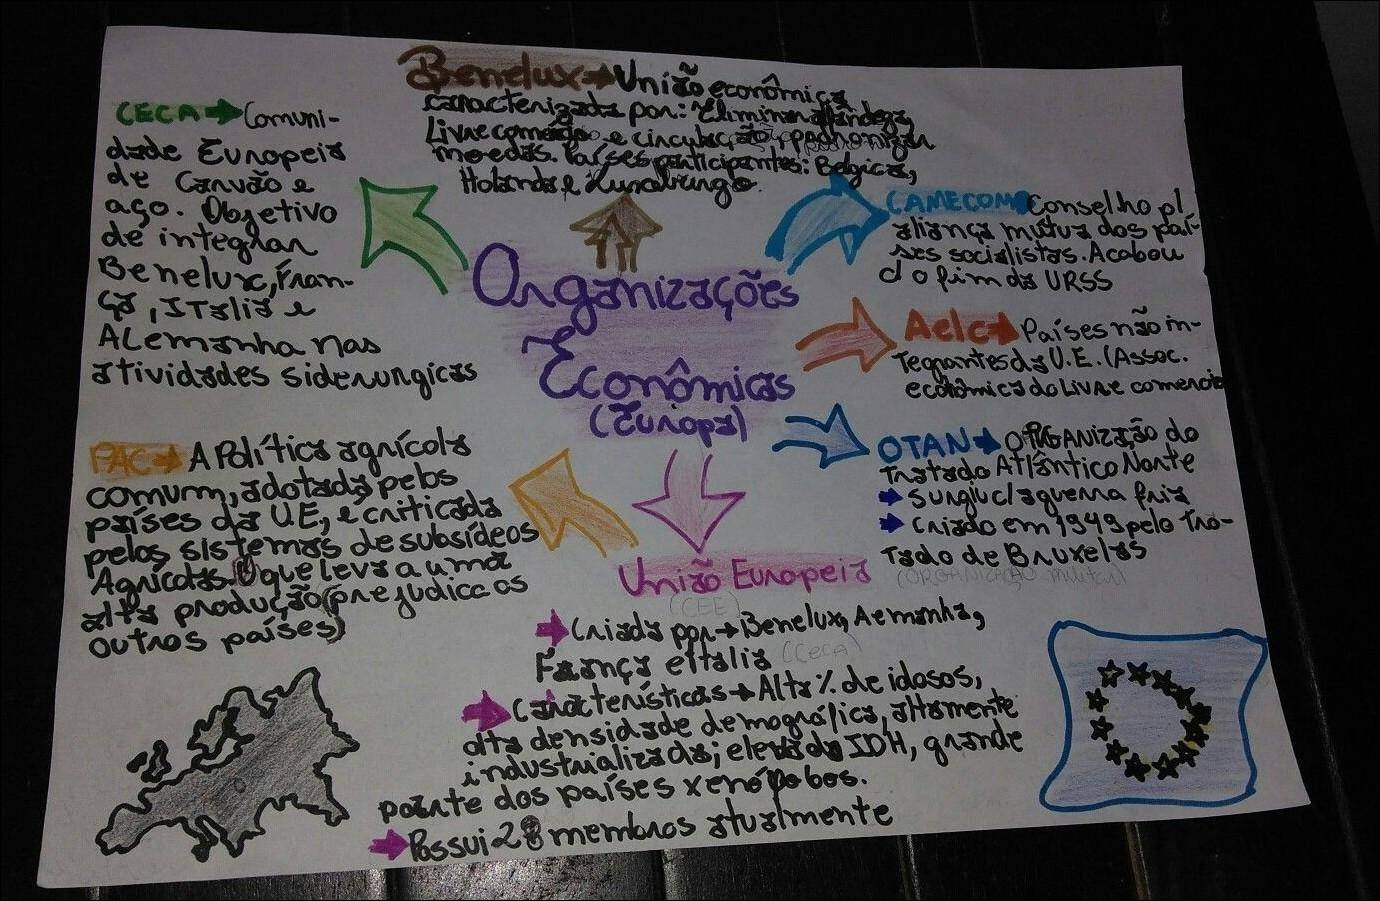 Benelux → União econômica
caracterizada por: Eliminar alfândega,
Livre comércio e circulação, padronizar
moedas. Países participantes: Bélgica,
Holanda e Luxemburgo.
CECA → Comuni-
dade Europeia
de Carvão e
aço. Objetivo
de integrar
Benelux, Fran-
ça, ITália e
ALemanha nas
atividades siderurgicas
CAMECOM Conselho p/
aliança mútua dos paí-
ses socialistas. Acabou
c/ o fim da URSS
Organizações
Econômicas
(Europa)
Aelc → Países não in-
Tegrantes da U.E. (Assoc.
econômica do Livre comercio
OTAN → ORGANIZAÇÃO do
Tratado Atlântico Norte
→ surgiu c/ a guerra fria
→ criado em 1949 pelo Tra-
Tado de Bruxelas
(ORGANIZAÇÃO militar)
PAC → A Política agrícola
comum, adotada pelos
países da U.E, é criticada
pelos sistemas de subsídeos
Agrícolas. O que leva a uma
alta produção (prejudica os
outros países)
União Europeia
(CEE)
→ Criada por → Benelux, Aemanha,
França e Itália (Ceca)
→ Características → Alta % de idosos,
alta densidade demográfica, altamente
industrializada; elevado IDH, grande
parte dos países xenófobos.
→ Possui 28 membros atualmente